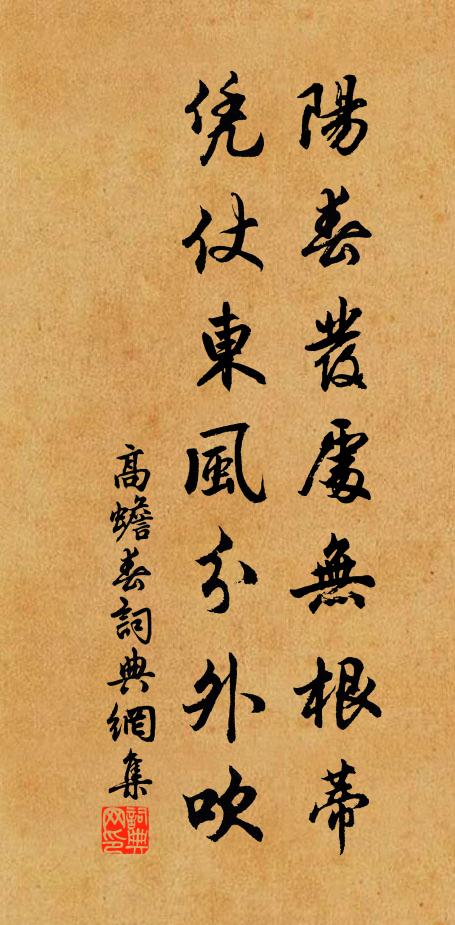 陽春發處無根蒂
凭仗東風分外吹
高蟾春詞典網集
詞典網印